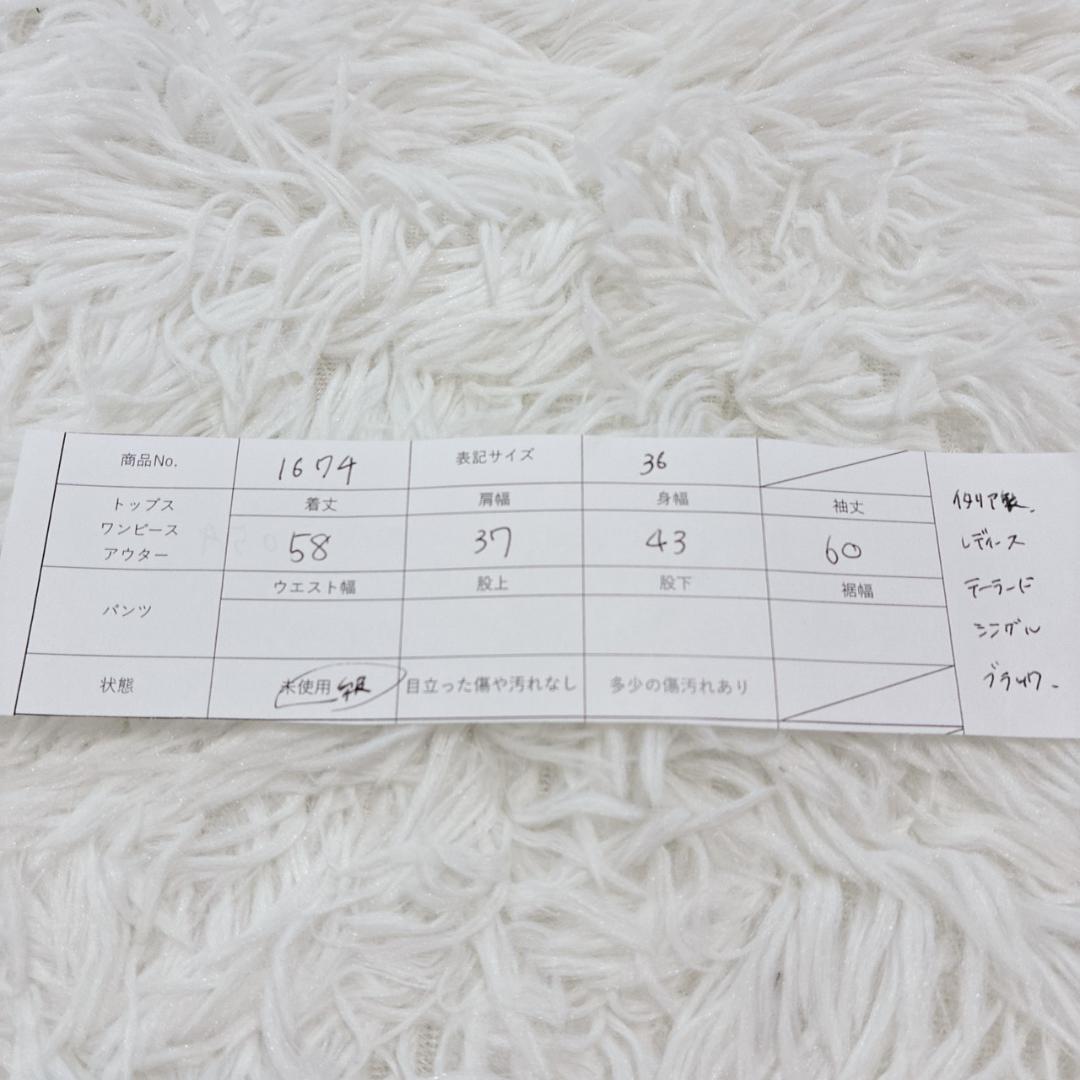 商品No. 1674 表記サイズ 36
トップス ワンピース アウター
着丈 肩幅 身幅 袖丈
58 37 43 60
パンツ
ウエスト幅 股上 股下 裾幅
状態 未使用 目立った傷や汚れなし 多少の傷汚れあり
イタリア製.
レディース
テーラード
シングル
ブラック.